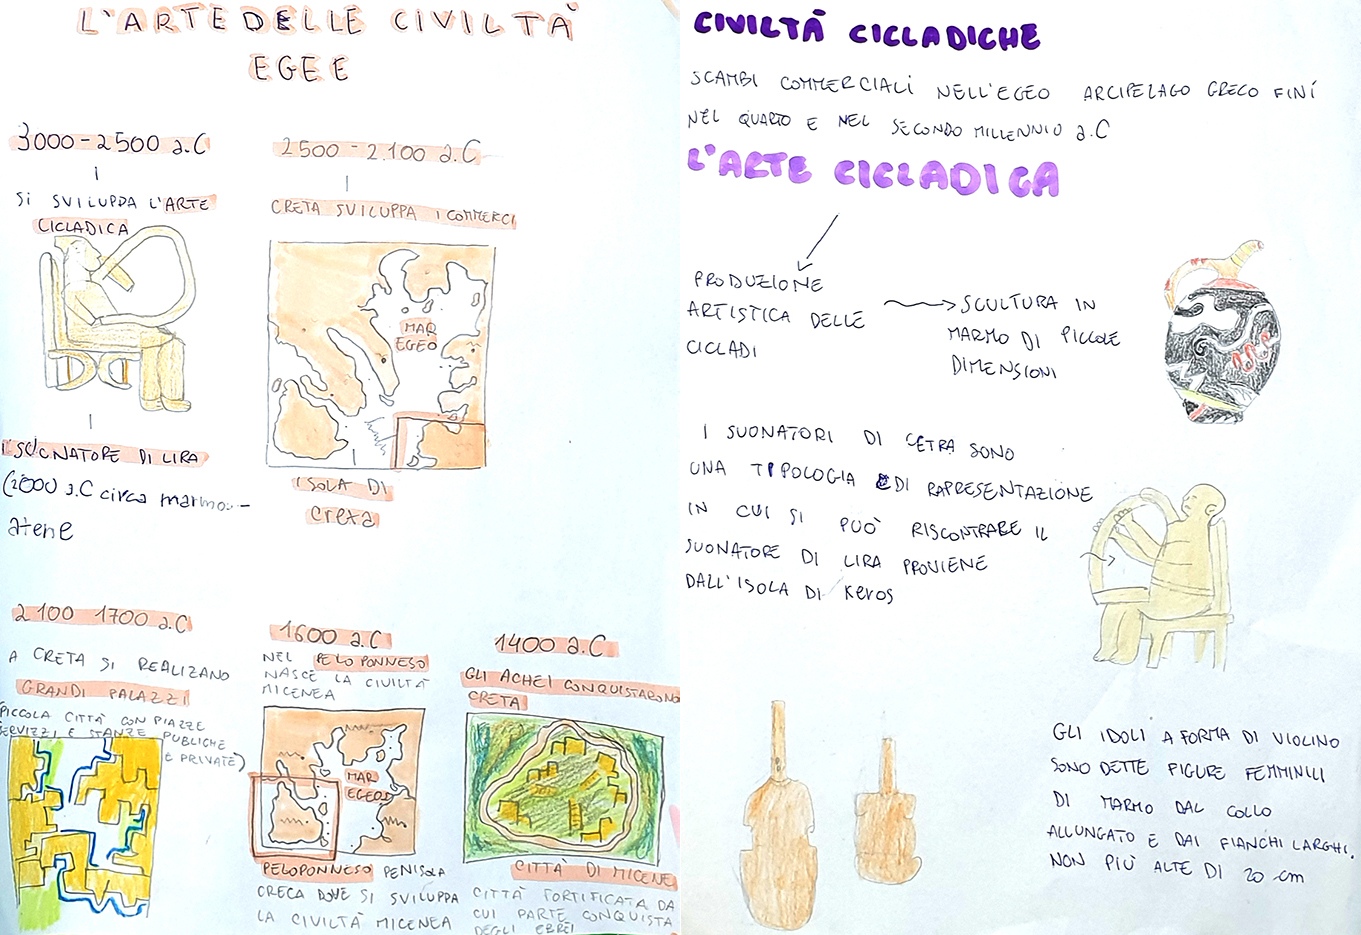 L'ARTE DELLE CIVILTÀ
EGEE
3000-2500 a.C
SI SVILUPPA L'ARTE
CICLADICA
SUONATORE DI LIRA
(2000 a.C circa marmo -
atene
2500-2.100 a.C
CRETA SVILUPPA I COMMERCI
MAR
EGEO
ISOLA DI
creta
2100 1700 a.C
A CRETA SI REALIZANO
GRANDI PALAZZI
(PICCOLA CITTÀ CON PIAZZE
SERVIZZI E STANZE PUBLICHE
E PRIVATE)
1600 a.C
NEL PELOPONNESO
NASCE LA CIVILTÀ
MICENEA
MAR
EGEO
PELOPONNESO PENISOLA
GRECA DOVE SI SVILUPPA
LA CIVILTÀ MICENEA
1400 a.C
GLI ACHEI CONQUISTARONO
CRETA
CITTÀ DI MICENE
CITTÀ FORTIFICATA DA
CUI PARTE CONQUISTA
DEGLI EBREI
CIVILTÀ CICLADICHE
SCAMBI COMMERCIALI NELL'EGEO ARCIPELAGO GRECO FINÍ
NEL QUARTO E NEL SECONDO MILLENNIO a.C
L'ARTE CICLADICA
PRODUZIONE
ARTISTICA DELLE
CICLADI
SCULTURA IN
MARMO DI PICCOLE
DIMENSIONI
I SUONATORI DI CETRA SONO
UNA TIPOLOGIA DI RAPRESENTAZIONE
IN CUI SI PUÒ RISCONTRARE IL
SUONATORE DI LIRA PROVIENE
DALL'ISOLA DI Keros
GLI IDOLI A FORMA DI VIOLINO
SONO DETTE FIGURE FEMMINILI
DI MARMO DAL COLLO
ALLUNGATO E DAI FIANCHI LARGHI.
NON PIÙ ALTE DI 20 cm